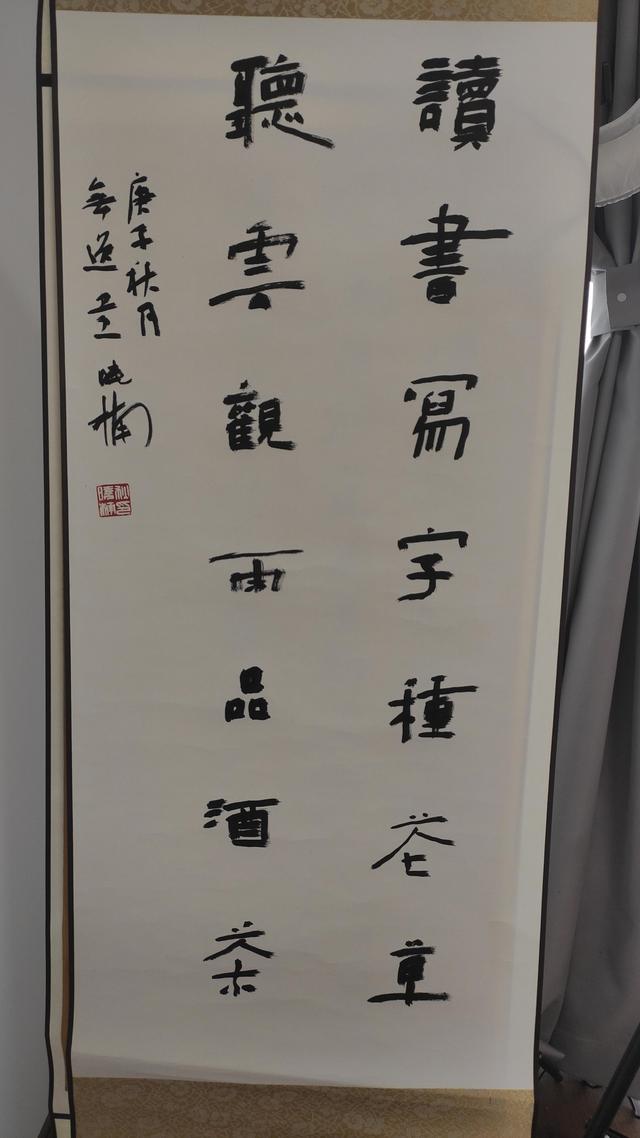 讀書寫字種花草
聽雲觀雨品酒茶
庚子秋月
無逸堂曉楠